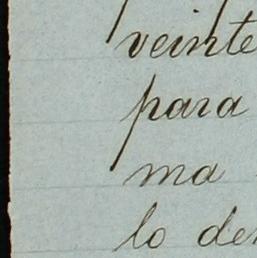 veinte
para
ma
lo de